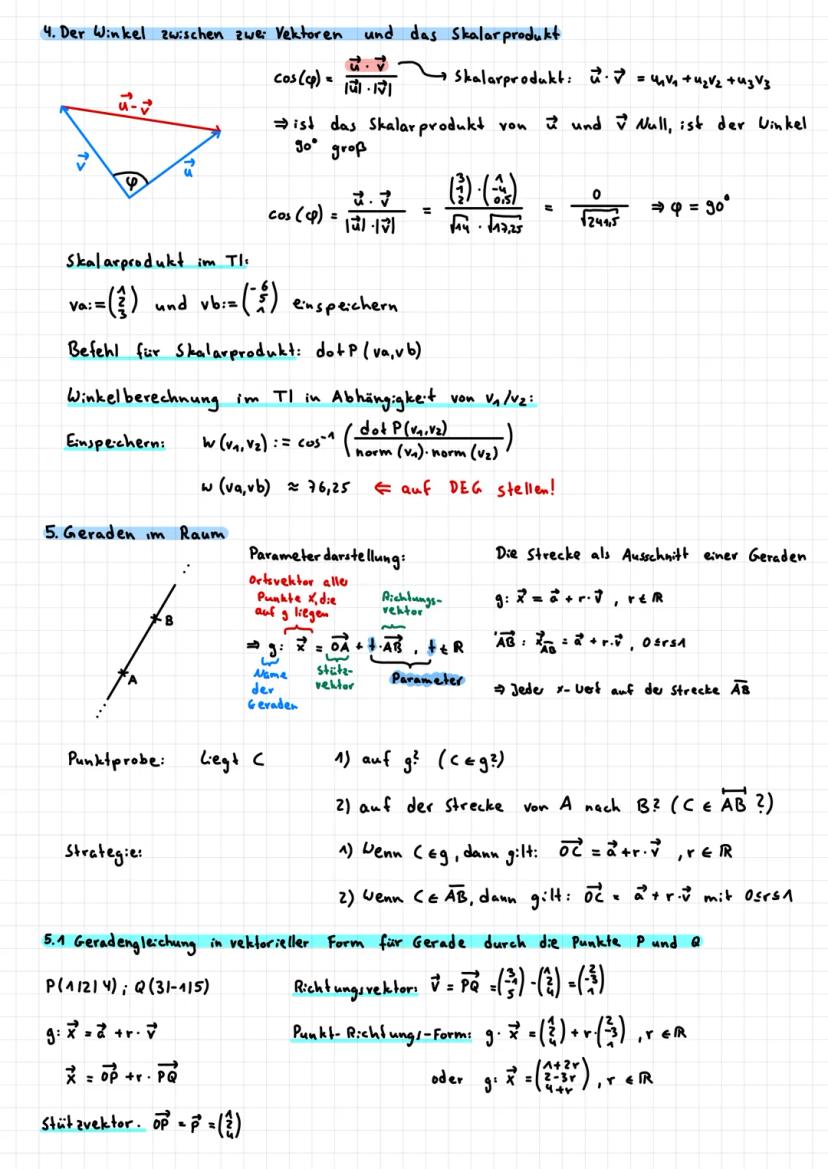 4. Der Winkel zwischen zwei Vektoren und das Skalarprodukt
cos(φ) = (u⃗ · v⃗) / (|u⃗| · |v⃗|) → Skalarprodukt: u⃗ · v⃗ = u₁v₁ + u₂v₂ + u₃v₃
u⃗ - v⃗
v⃗
φ
u⃗
⇒ ist das Skalarprodukt von u⃗ und v⃗ Null, ist der Winkel
90° groß
cos(φ) = (u⃗ · v⃗) / (|u⃗| · |v⃗|) = ((3 1 2) · (1 -4 0,5)) / (√14 · √17,25) = 0 / √241,5 ⇒ φ = 90°
Skalarprodukt im TI:
va:= (1 2 3) und vb:= (-6 5 1) einspeichern
Befehl für Skalarprodukt: dotP(va,vb)
Winkelberechnung im TI in Abhängigkeit von v₁/v₂:
Einspeichern: w(v₁,v₂) := cos⁻¹ (dotP(v₁,v₂) / norm(v₁)·norm(v₂))
w(va,vb) ≈ 76,25 ⇐ auf DEG stellen!
5. Geraden im Raum
B
A
Parameterdarstellung:
Ortsvektor aller
Punkte X, die
auf g liegen
Richtungs-
vektor
⇒ g: x⃗ = OA⃗ + t · AB⃗ , t ∈ R
Name
der
Geraden
Stütz-
vektor
Parameter
Die Strecke als Ausschnitt einer Geraden
g: x⃗ = a⃗ + r · v⃗ , r ∈ R
AB : x⃗_AB = a⃗ + r · v⃗ , 0≤r≤1
⇒ Jeder x-Wert auf der Strecke AB
Punktprobe: Liegt C 1) auf g? (C ∈ g?)
2) auf der Strecke von A nach B? (C ∈ AB ?)
Strategie: 1) Wenn C ∈ g, dann gilt: OC⃗ = a⃗ + r · v⃗ , r ∈ R
2) Wenn C ∈ AB, dann gilt: OC⃗ = a⃗ + r · v⃗ mit 0≤r≤1
5.1 Geradengleichung in vektorieller Form für Gerade durch die Punkte P und Q
P(1|2|4) ; Q(3|-1|5) Richtungsvektor: v⃗ = PQ⃗ = (3 -1 5) - (1 2 4) = (2 -3 1)
g: x⃗ = a⃗ + r · v⃗ Punkt-Richtungs-Form: g: x⃗ = (1 2 4) + r · (2 -3 1) , r ∈ R
x⃗ = OP⃗ + r · PQ⃗ oder g: x⃗ = (1+2r 2-3r 4+r) , r ∈ R
Stützvektor: OP⃗ = p⃗ = (1 2 4)